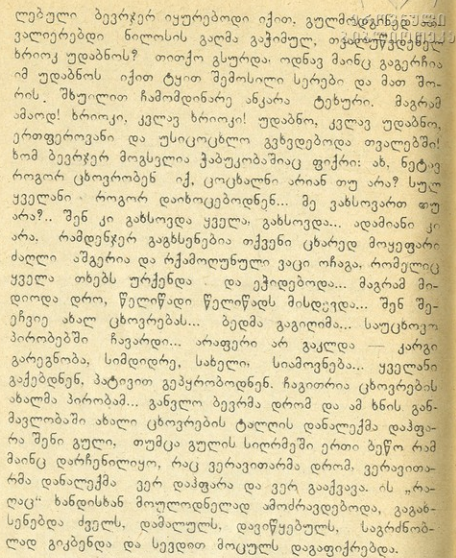 ლებული ბევრჯერ იყურებოდი იქით, გულმოდგინედ ათ-
ვალიერებდი ნილოსის გაღმა გაჭიმულ, თვალუწვდენელ
ხრიოკ უდაბნოს? თითქო გსურდა, ოდნავ მაინც გაგერჩია
იმ უდაბნოს იქით ტყით შემოსილი სერები და მათ შო-
რის მხუილით ჩამომდინარე ანკარა ტეხური. მაგრამ
ამაოდ! ხრიოკი, კვლავ ხრიოკი! უდაბნო, კვლავ უდაბნო,
ერთფეროვანი და უსიცოცხლო გვხვდებოდა თვალებში!
ხომ ბევრჯერ მოგსვლია ჭაბუკობაშიაც ფიქრი: ახ, ნეტავ
როგორ ცხოვრობენ იქ, ცოცხალნი არიან თუ არა? სულ
ყველანი როგორ დაიხოცებოდნენ... მე ვახსოვართ თუ
არა?.. შენ კი გახსოვდა ყველა, გახსოვდა... ადამიანი კი
არა, რამდენჯერ გაგხსენებია თქვენი ცხარედ მოყეფარი
ძაღლი აშგერია და რქამოღუნული ვაცი ოჩაგა, რომელიც
ყველა თხებს ურქენდა და ეჭიდებოდა... მაგრამ მი-
დიოდა დრო, წელიწადი წელიწადს მისდევდა... შენ შე-
ეჩვიე ახალ ცხოვრებას... ბედმა გაგიღიმა... საუცხოვო
პირობებში ჩავარდი... არაფერი არ გაკლდა — კარგი
გარეგნობა, სიმდიდრე, სახელი, სიამოვნება... ყველანი
გაქებდნენ, პატივით გეპყრობოდნენ. ჩაგითრია ცხოვრების
ახალმა პირობამ... განვლო ბევრმა დრომ და ამ ხნის გან-
მავლობაში ახალი ცხოვრების ტალღის დანალექმა დაჰფა-
რა შენი გული, თუმცა გულის სიღრმეში ერთი ბეწო რამ
მაინც დარჩენილიყო, რაც ვერავითარმა დრომ, ვერავითა-
რმა დანალექმა ვერ დაჰფარა და ვერ გააქვავა. ის „რა-
ღაც“ ხანდისხან მოულოდნელად ამოძრავდებოდა, გაგახ-
სენებდა ძველს, დამალულს, დავიწყებულს, საგრძნობ-
ლად გიკბენდა და სევდით მოცულს დაგაფიქრებდა.